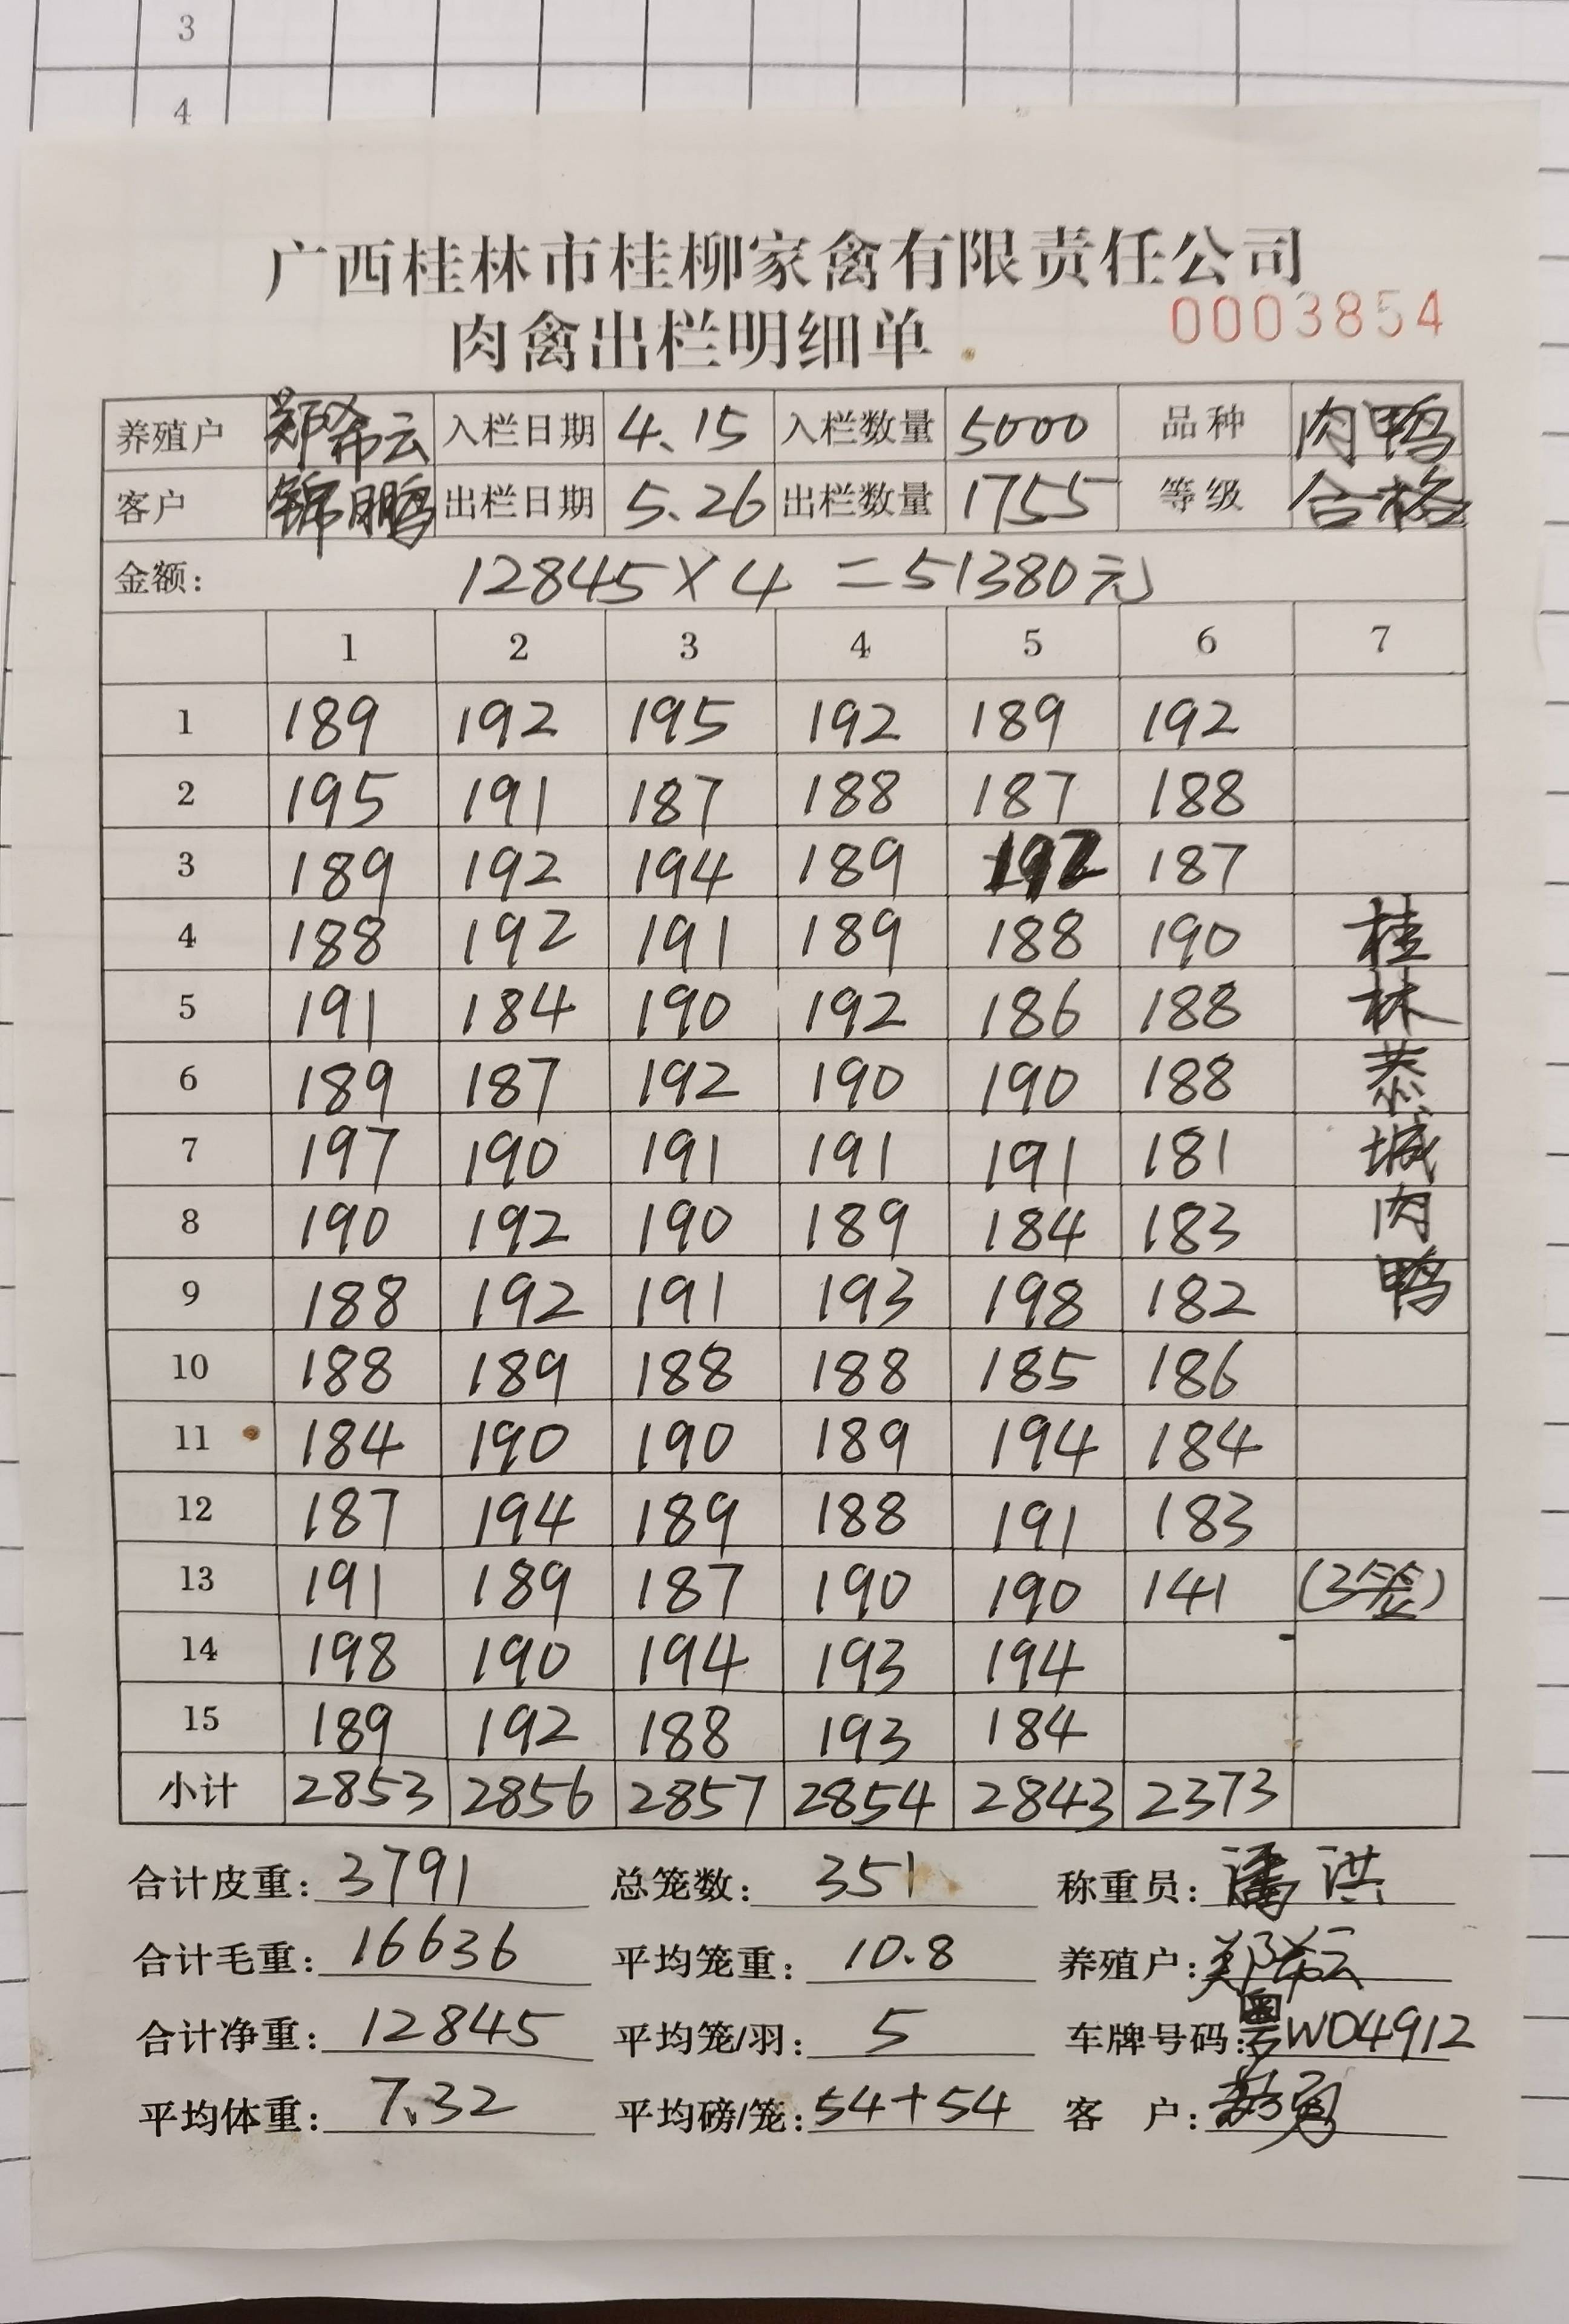 3
4
广西桂林市桂柳家禽有限责任公司
肉禽出栏明细单 0003854
养殖户 郑希云 入栏日期 4.15 入栏数量 5000 品种 肉鸭
客户 锦鹏 出栏日期 5.26 出栏数量 1755 等级 合格
金额: 12845×4=51380元
1 2 3 4 5 6 7
1 189 192 195 192 189 192
2 195 191 187 188 187 188
3 189 192 194 189 192 187
4 188 192 191 189 188 190 桂
5 191 184 190 192 186 188 林
6 189 187 192 190 190 188 恭
7 197 190 191 191 191 181 城
8 190 192 190 189 184 183 肉
9 188 192 191 193 198 182 鸭
10 188 189 188 188 185 186
11 184 190 190 189 194 184
12 187 194 189 188 191 183
13 191 189 187 190 190 141 (3笼)
14 198 190 194 193 194
15 189 192 188 193 184
小计 2853 2856 2857 2854 2843 2373
合计皮重: 3791 总笼数: 351 称重员: 潘洪
合计毛重: 16636 平均笼重: 10.8 养殖户: 郑希云
合计净重: 12845 平均笼/羽: 5 车牌号码: 粤WD4912
平均体重: 7.32 平均磅/笼: 54+54 客户: